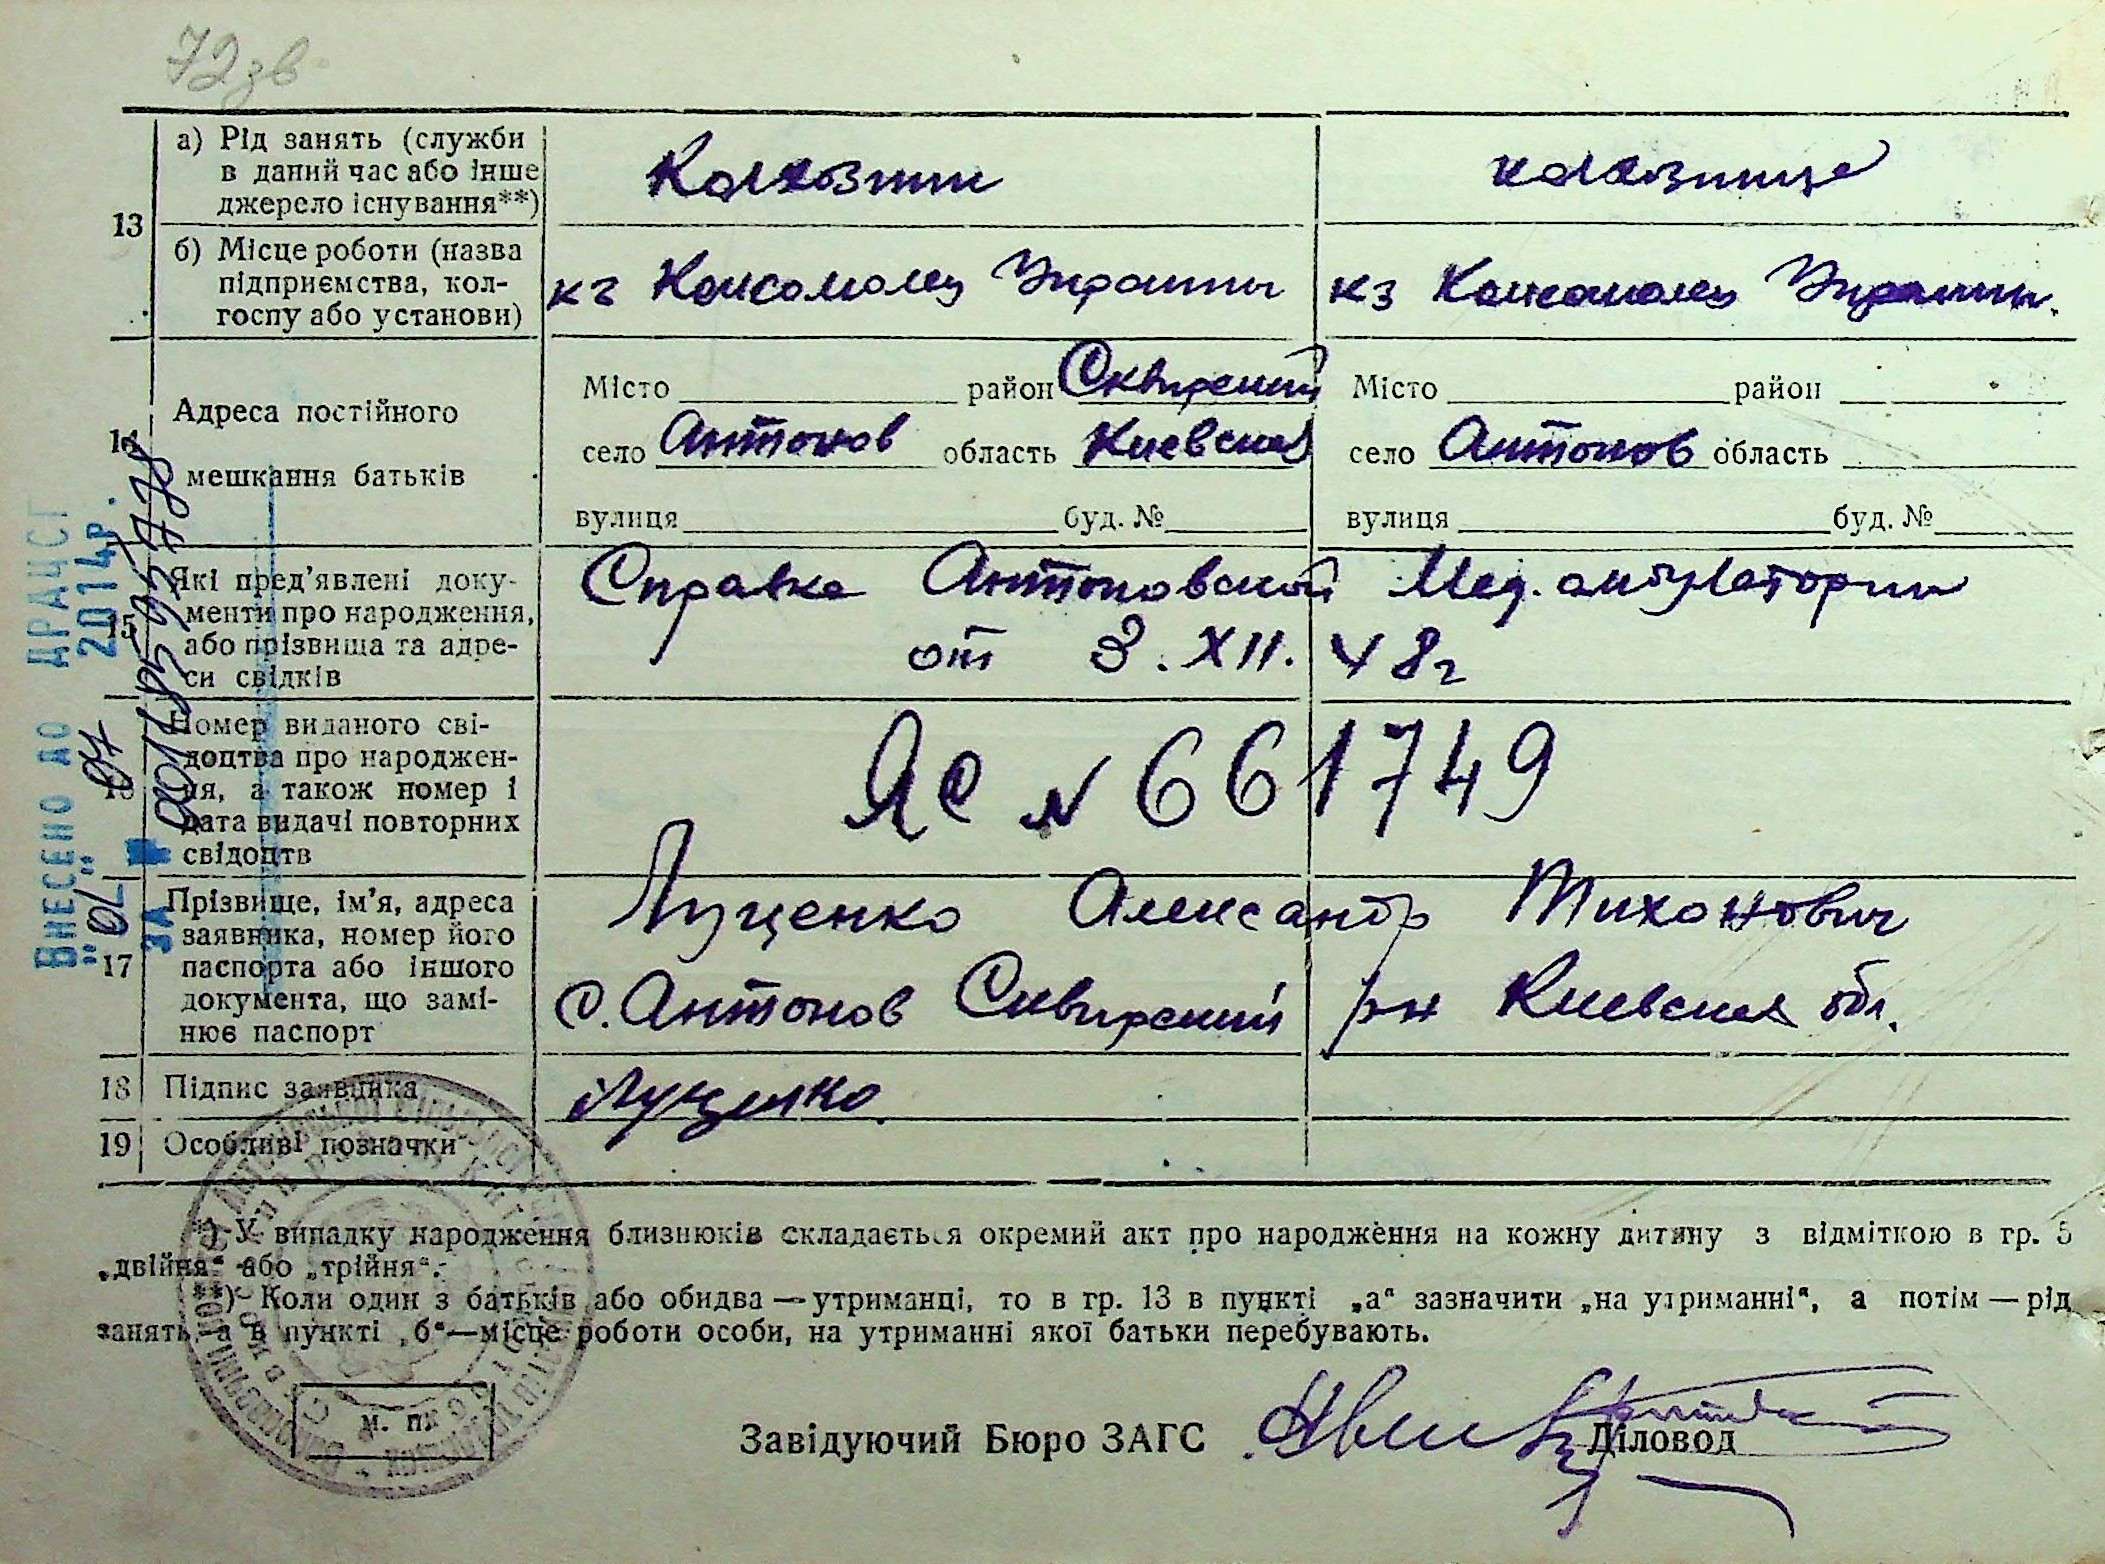 72зв
13
а) Рід занять (служби
в даний час або інше
джерело існування**)
Колхозник
колхозница
б) Місце роботи (назва
підприємства, кол-
госпу або установи)
кз Комсомолец Украины
кз Комсомолец Украины.
14
Адреса постійного
мешкання батьків
Місто район Сквирский
село Антонов область Киевская
вулиця буд. №
Місто район
село Антонов область
вулиця буд. №
15
Які пред'явлені доку-
менти про народження,
або прізвища та адре-
си свідків
Справка Антоновской Мед. амбулатории
от 3. XII. 48 г
16
Номер виданого сві-
доцтва про народжен-
ня, а також номер і
дата видачі повторних
свідоцтв
ЯС N 661749
17
Прізвище, ім'я, адреса
заявника, номер його
паспорта або іншого
документа, що замі-
нює паспорт
Луценко Александр Тихонович
с. Антонов Сквирский рн Киевская обл.
18 Підпис заявника
Луценко
19 Особливі позначки
*) У випадку народження близнюків складається окремий акт про народження на кожну дитину з відміткою в гр. 5
„двійня“ або „трійня“.
**) Коли один з батьків або обидва — утриманці, то в гр. 13 в пункті „а“ зазначити „на утриманні“, а потім — рід
занять, а в пункті „б“ — місце роботи особи, на утриманні якої батьки перебувають.
м. п.
Завідуючий Бюро ЗАГС
Діловод
ВНЕСЕНО ДО ДРАЦСГ
"01" 07 2014р.
ЗА